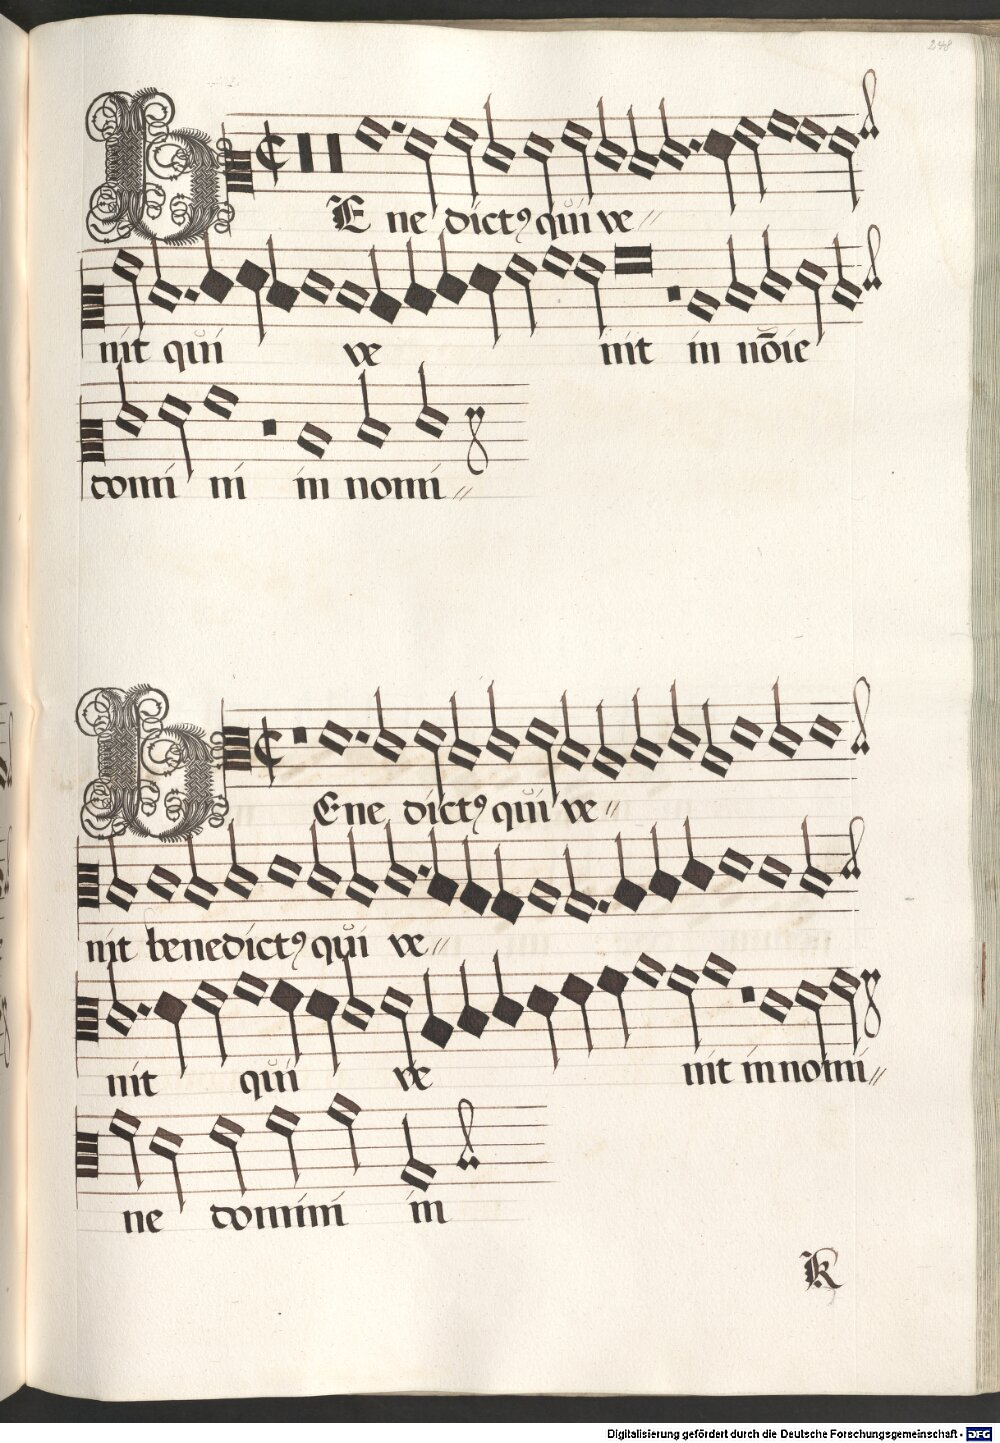 248
BE ne dictꝰ qui ve
nit qui ve nit in nōie
domi ni in nomi
BEne dictꝰ qui ve
nit benedictꝰ qui ve
nit qui ve nit in nomi
ne domini in
k
Digitalisierung gefördert durch die Deutsche Forschungsgemeinschaft - DFG